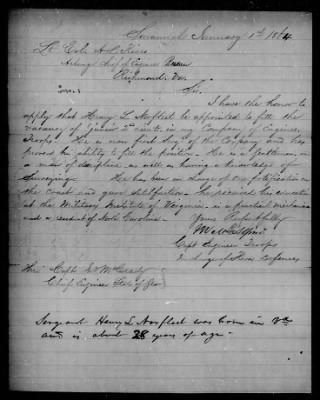 Savannah January 1st 1864
Lt Col. A. L. Rives
Acting Chief of Engineer Bureau
Richmond. Va.
Sir.
I have the honor to
apply that Henry L Norfleet be appointed to fill the
vacancy of Junior 2nd Lieut. in my Company of Engineer
Troops. He is now first Sergt of the Company and has
proved his ability to fill the position. He is a Gentleman, and
a man of discipline, as well as having a knowledge of
Surveying. He has been in charge of our fortifications on
the coast and gave satisfaction. He received his education
at the Military Institute of Virginia, is a practical mechanic
and a resident of North Carolina.
Yours Respectfully
Capt Engineer Troops
In charge of River defences
Thro' Capt. Jno McCrady
Chief Engineer State of Geo
Sergeant Henry L Norfleet was born in Va
and is about 28 years of age.